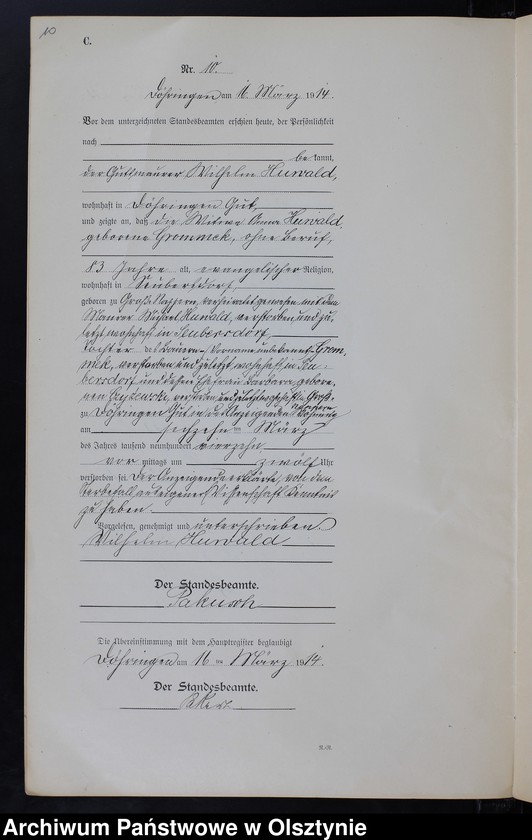 10
C.
Nr. 10.
Döhringen am 16. März 1914.
Vor dem unterzeichneten Standesbeamten erschien heute, der Persönlichkeit
nach
be kannt,
der Gutsmaurer Wilhelm Huwald,
wohnhaft in Döhringen Gut,
und zeigte an, daß die Witwe Anna Huwald,
geborene Grommek, ohne Beruf,
83 Jahre alt, evangelischer Religion,
wohnhaft in Seubersdorf,
geboren zu Groß Nappern, verheiratet gewesen mit dem
Maurer Michael Huwald, verstorben und zu-
letzt wohnhaft in Seubersdorf,
Tochter des Bauern - Vorname unbekannt - Grom,
mek, verstorben und zuletzt wohnhaft in Seu-
bersdorf und dessen Ehefrau Barbara, gebore,
nen verstorben und zuletzt wohnhaft in Groß-
Nappern
zu Döhringen Gut in des Anzeigenden Wohnung
am sechzehnten März
des Jahres tausend neunhundert vierzehn
vor mittags um zwölf Uhr
verstorben sei. Der Anzeigende erklärte, von dem
Sterbefall aus eigener Wissenschaft Kenntnis
zu haben.
Vorgelesen, genehmigt und unterschrieben.
Wilhelm Huwald
Der Standesbeamte.
Die Übereinstimmung mit dem Hauptregister beglaubigt
Döhringen am 16 ten März 1914.
Der Standesbeamte.
Archiwum Państwowe w Olsztynie